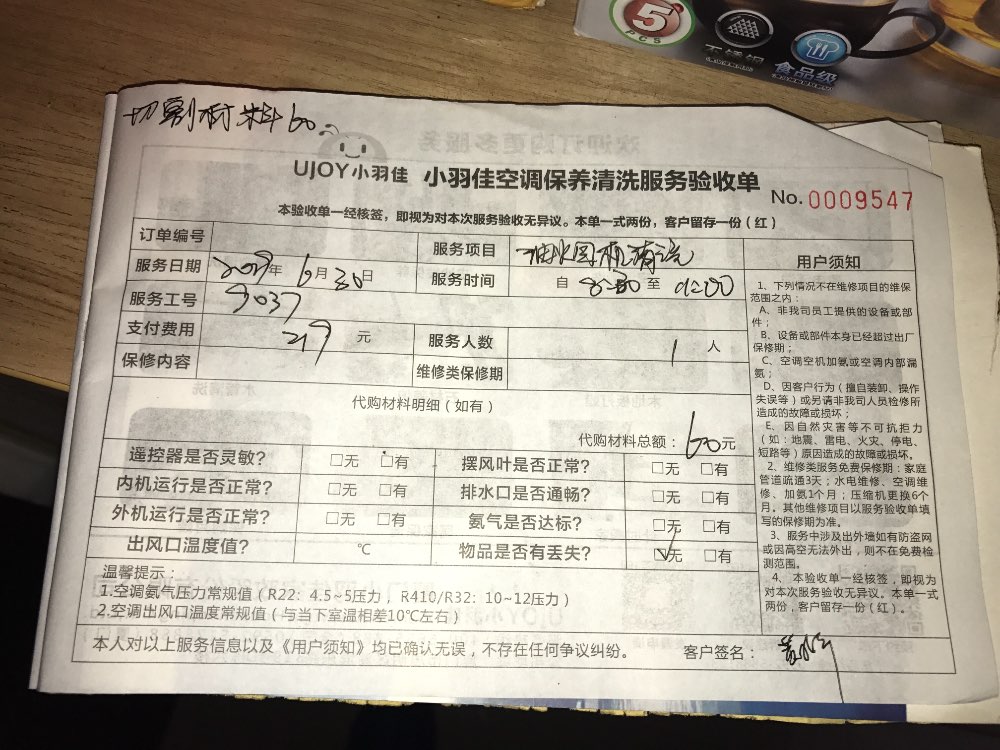 5
PCS
不锈钢
食品级
切割材料60
UJOY小羽佳 小羽佳空调保养清洗服务验收单
No. 0009547
本验收单一经核签，即视为对本次服务验收无异议。本单一式两份，客户留存一份（红）
订单编号
服务项目 油烟机清洗
服务日期 2019年6月30日
服务时间 自 8:30 至
服务工号 9037
支付费用 219 元
服务人数 1 人
保修内容
维修类保修期
代购材料明细（如有）
代购材料总额：60元
遥控器是否灵敏？ □无 □有 摆风叶是否正常？ □无 □有
内机运行是否正常？ □无 □有 排水口是否通畅？ □无 □有
外机运行是否正常？ □无 □有 氨气是否达标？ □无 □有
出风口温度值？ ℃ 物品是否有丢失？ ☑无 □有
温馨提示：
1.空调氨气压力常规值（R22：4.5~5压力，R410/R32：10~12压力）
2.空调出风口温度常规值（与当下室温相差10℃左右）
用户须知
1、下列情况不在维修项目的维保
范围之内：
A、非我司员工提供的设备或部
件；
B、设备或部件本身已经超过出厂
保修期；
C、空调空机加氨或空调内部漏
氨；
D、因客户行为（擅自装卸、操作
失误等）或另请非我司人员检修所
造成的故障或损坏；
E、因自然灾害等不可抗拒力
（如：地震、雷电、火灾、停电、
短路等）原因造成的故障或损坏。
2、维修类服务免费保修期：家庭
管道疏通3天；水电维修、空调维
修、加氨1个月；压缩机更换6个
月。其他维修项目以服务验收单填
写的保修期为准。
3、服务中涉及出外墙如有防盗网
或因高空无法外出，则不在免费检
测范围。
4、本验收单一经核签，即视为
对本次服务验收无异议。本单一式
两份，客户留存一份（红）。
本人对以上服务信息以及《用户须知》均已确认无误，不存在任何争议纠纷。 客户签名：